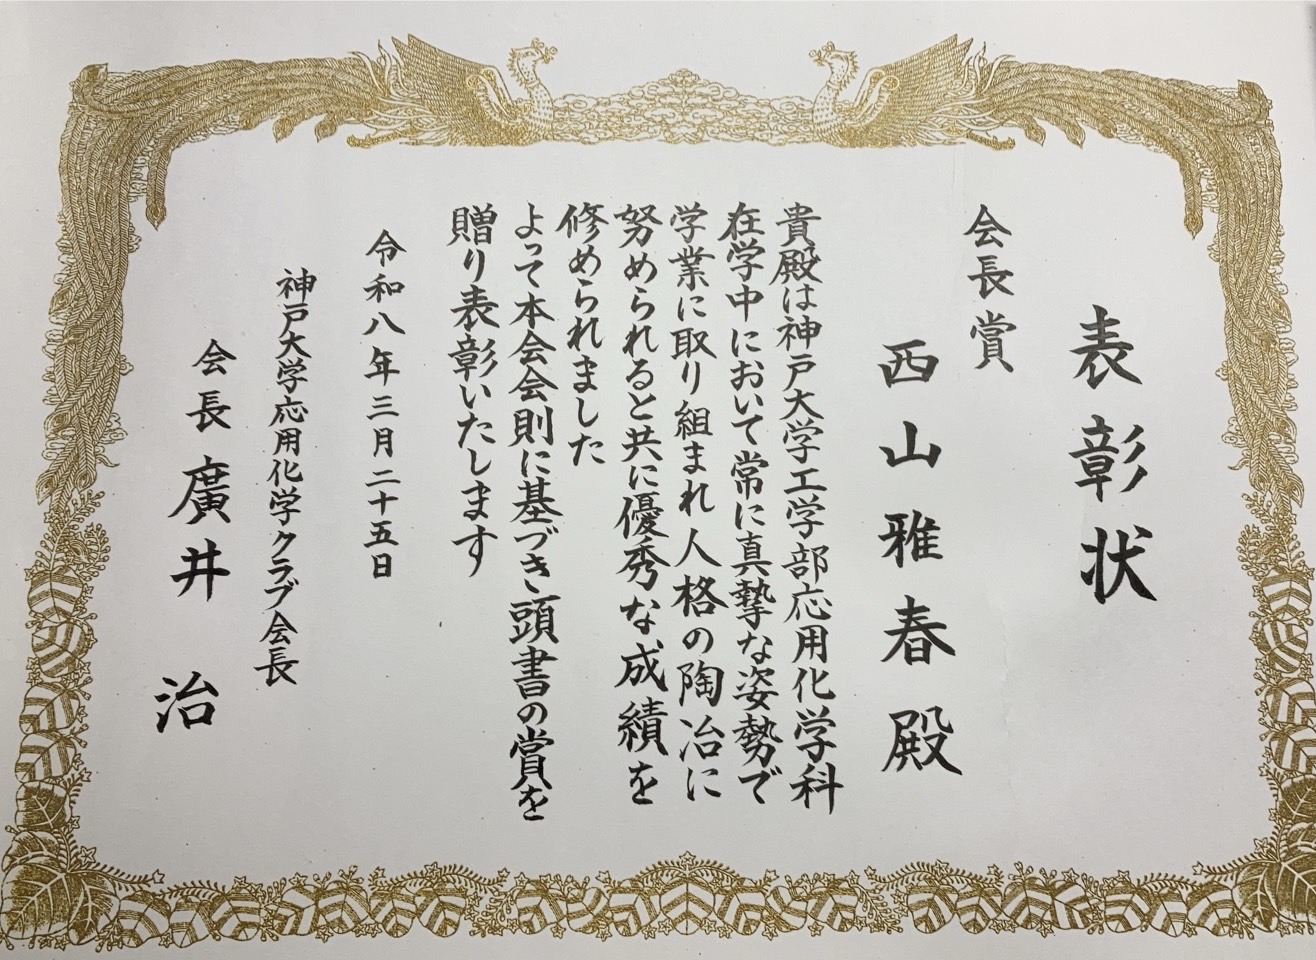 表彰状
会長賞
西山雅春殿
貴殿は神戸大学工学部応用化学科
在学中において常に真摯な姿勢で
学業に取り組まれ人格の陶冶に
努められると共に優秀な成績を
修められました
よって本会会則に基づき頭書の賞を
贈り表彰いたします
令和八年三月二十五日
神戸大学応用化学クラブ会長
会長廣井治